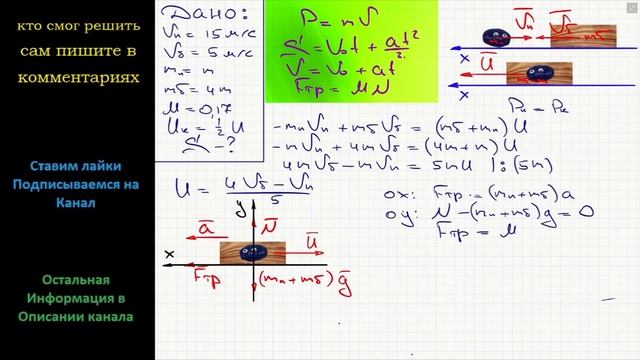 кто смог решить
сам пишите в
комментариях
Ставим лайки
Подписываемся на
Канал
Остальная
Информация в
Описании канала
Дано:
Vп = 15 м/с
Vб = 5 м/с
mп = m
mб = 4m
μ = 0,17
Uк = 1/2 U
S - ?
P = mV
S = V₀t + at²/2
V = V₀ + at
Fтр = μN
Vп Vб mб
x
U
x
Pн = Pк
-mпVп + mбVб = (mб + mп)U
-mVп + 4mVб = (4m + m)U
4mVб - mVп = 5mU |:(5m)
U = (4Vб - Vп)/5
ox: Fтр = (mп + mб)a
oy: N - (mп + mб)g = 0
Fтр = μ
y
a N U
x
Fтр (mп + mб)g